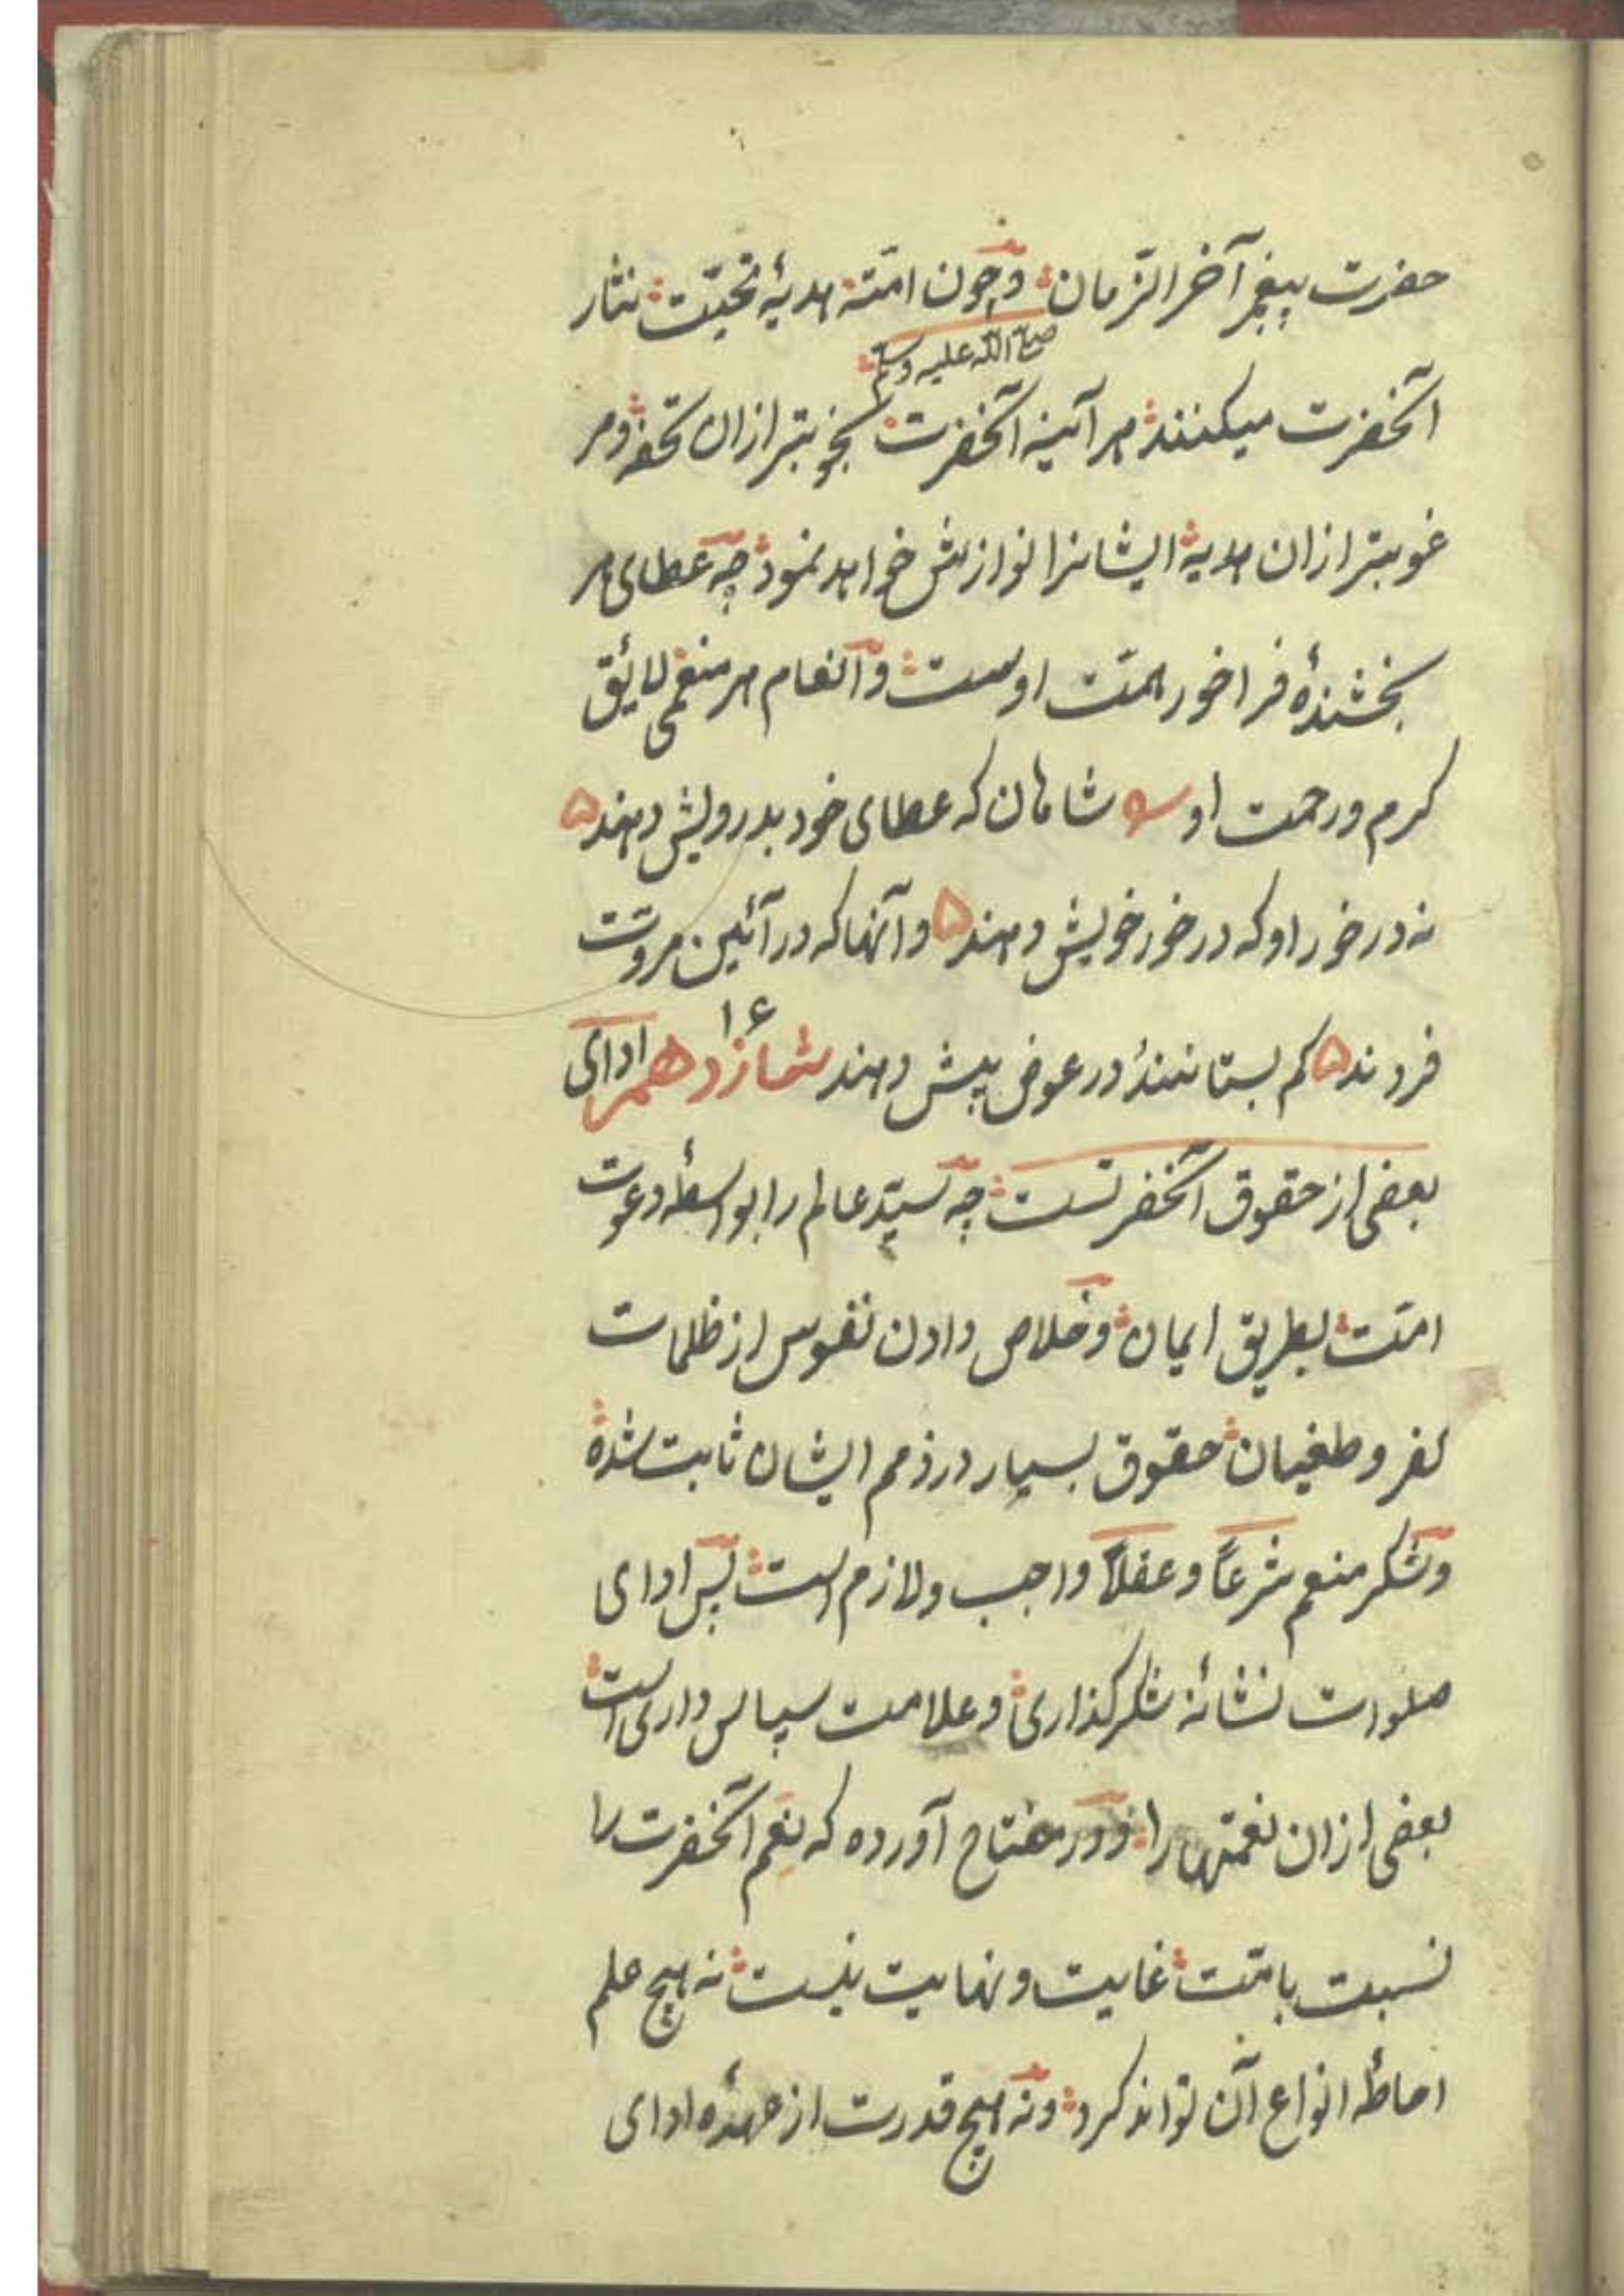 حضرت پیغمبر آخر الزّمان وچون امّته هدیۀ تحیّت نثار
صلی الله علیه وسلم
آنحضرت میکنند هر آئینه آنحضرت بخوبتر ازان تحفه و مر
غوبتر ازان هدیه ایشانرا نوازش خواهد نمود چه عطای هر
بخشندۀ فراخور همّت اوست وانعام هر منعمی لایٔق
کرم ورحمت او شاهان که عطای خود بدرویش دهند
نه درخور او که درخور خویش دهند وآنها که در آئین مروّت
فردند کم بستانند ودر عوض بیش دهند شانزدهم ۱۶ ادای
بعضی از حقوق آنحضرتست چه سیّد عالم را بواسطۀ دعوت
امّت بطریق ایمان وخلاص دادن نفوس از ظلمات
کفر وطغیان حقوق بسیار در ذمم ایشان ثابت شده
وشکر منعم شرعاً وعقلاً واجب ولازم است پس ادای
صلوات نشانۀ شکرگذاری وعلامت سپاس داری است
بعضی ازان نعمتهارا ودر مفتاح آورده که نعم آنحضرت را
نسبت بامّت غایت ونهایت نیست نه هیچ علم
احاطۀ انواع آن تواند کرد ونه هیچ قدرت از عهدۀ ادای